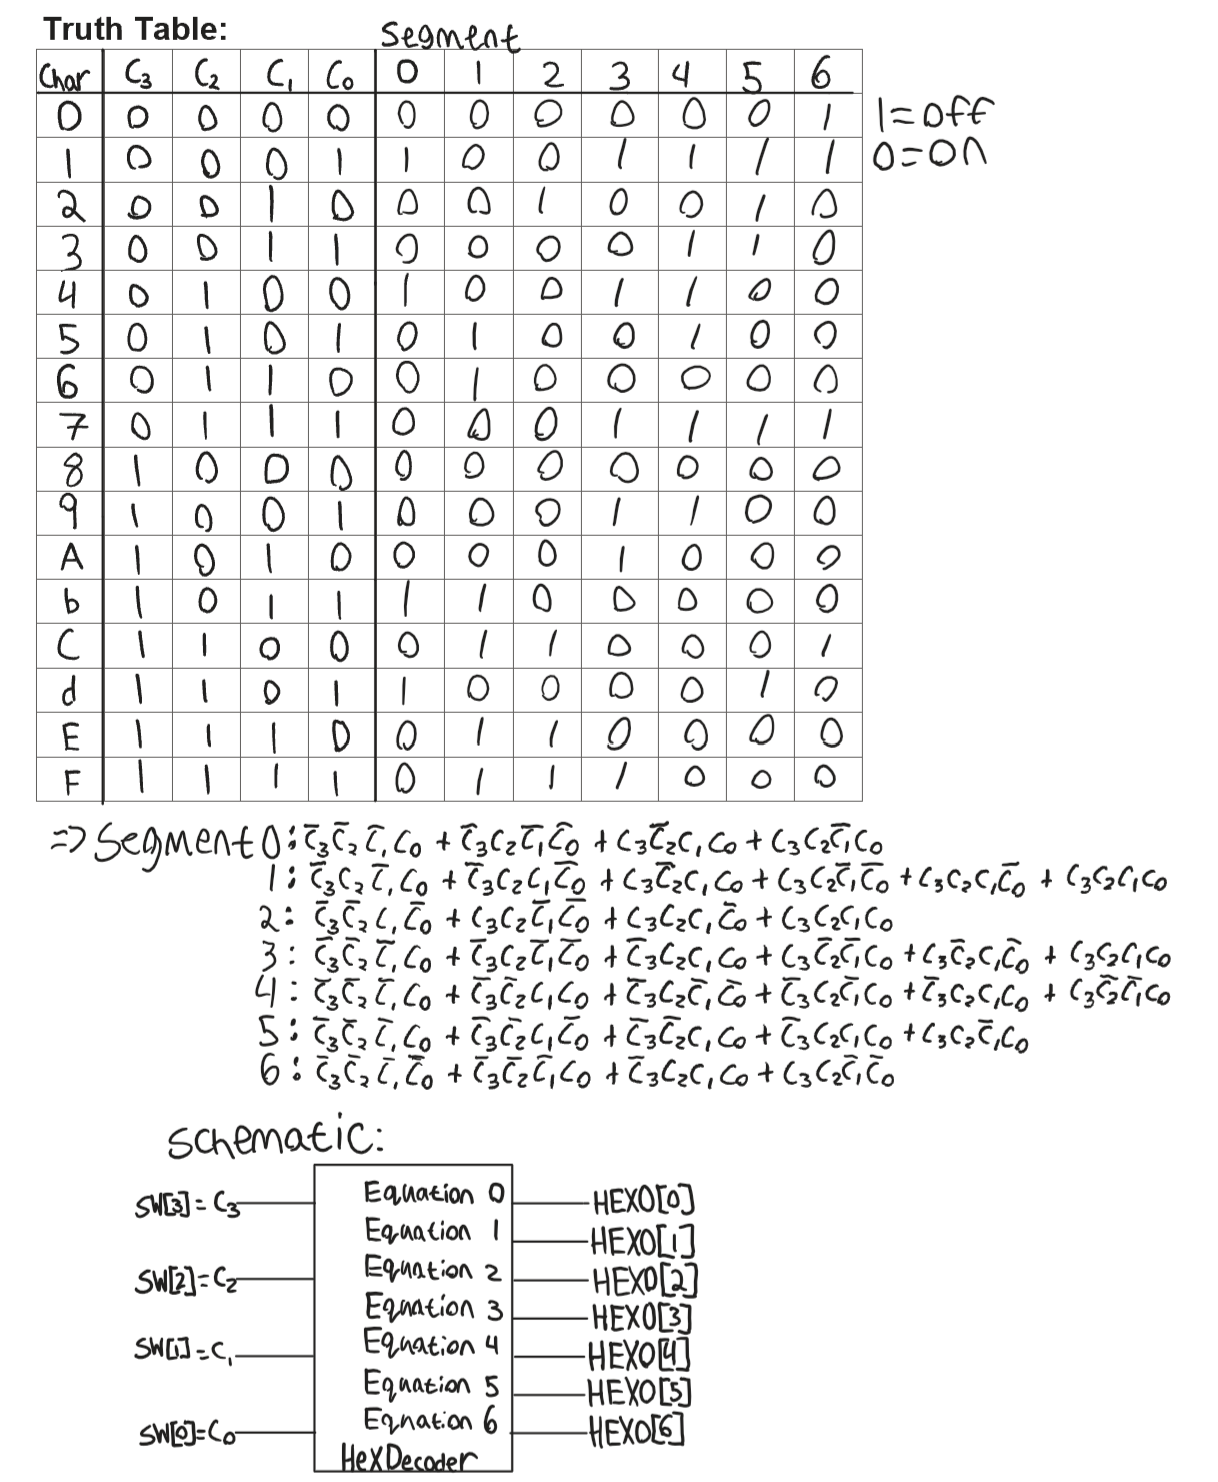 Truth Table:
Segment
Char C₃ C₂ C₁ C₀ 0 1 2 3 4 5 6
0 0 0 0 0 0 0 0 0 0 0 1 1=off
1 0 0 0 1 1 0 0 1 1 1 1 0=on
2 0 0 1 0 0 0 1 0 0 1 0
3 0 0 1 1 0 0 0 0 1 1 0
4 0 1 0 0 1 0 0 1 1 0 0
5 0 1 0 1 0 1 0 0 1 0 0
6 0 1 1 0 0 1 0 0 0 0 0
7 0 1 1 1 0 0 0 1 1 1 1
8 1 0 0 0 0 0 0 0 0 0 0
9 1 0 0 1 0 0 0 1 1 0 0
A 1 0 1 0 0 0 0 1 0 0 0
b 1 0 1 1 1 1 0 0 0 0 0
C 1 1 0 0 0 1 1 0 0 0 1
d 1 1 0 1 1 0 0 0 0 1 0
E 1 1 1 0 0 1 1 0 0 0 0
F 1 1 1 1 0 1 1 1 0 0 0
=> Segment 0: C̅₃C̅₂C̅₁C₀ + C̅₃C₂C̅₁C̅₀ + C₃C̅₂C₁C₀ + C₃C₂C̅₁C₀
1: C̅₃C₂C̅₁C₀ + C̅₃C₂C₁C̅₀ + C₃C̅₂C₁C₀ + C₃C₂C̅₁C̅₀ + C₃C₂C₁C̅₀ + C₃C₂C₁C₀
2: C̅₃C̅₂C₁C̅₀ + C₃C₂C̅₁C̅₀ + C₃C₂C₁C̅₀ + C₃C₂C₁C₀
3: C̅₃C̅₂C̅₁C₀ + C̅₃C₂C̅₁C̅₀ + C̅₃C₂C₁C₀ + C₃C̅₂C̅₁C₀ + C₃C̅₂C₁C̅₀ + C₃C₂C₁C₀
4: C̅₃C̅₂C̅₁C₀ + C̅₃C̅₂C₁C₀ + C̅₃C₂C̅₁C̅₀ + C̅₃C₂C̅₁C₀ + C̅₃C₂C₁C₀ + C₃C̅₂C̅₁C₀
5: C̅₃C̅₂C̅₁C₀ + C̅₃C̅₂C₁C̅₀ + C̅₃C̅₂C₁C₀ + C̅₃C₂C₁C₀ + C₃C₂C̅₁C₀
6: C̅₃C̅₂C̅₁C̅₀ + C̅₃C̅₂C̅₁C₀ + C̅₃C₂C₁C₀ + C₃C₂C̅₁C̅₀
Schematic:
SW[3]=C₃ Equation 0 HEX0[0]
Equation 1 HEX0[1]
SW[2]=C₂ Equation 2 HEX0[2]
Equation 3 HEX0[3]
SW[1]=C₁ Equation 4 HEX0[4]
Equation 5 HEX0[5]
SW[0]=C₀ Equation 6 HEX0[6]
HexDecoder